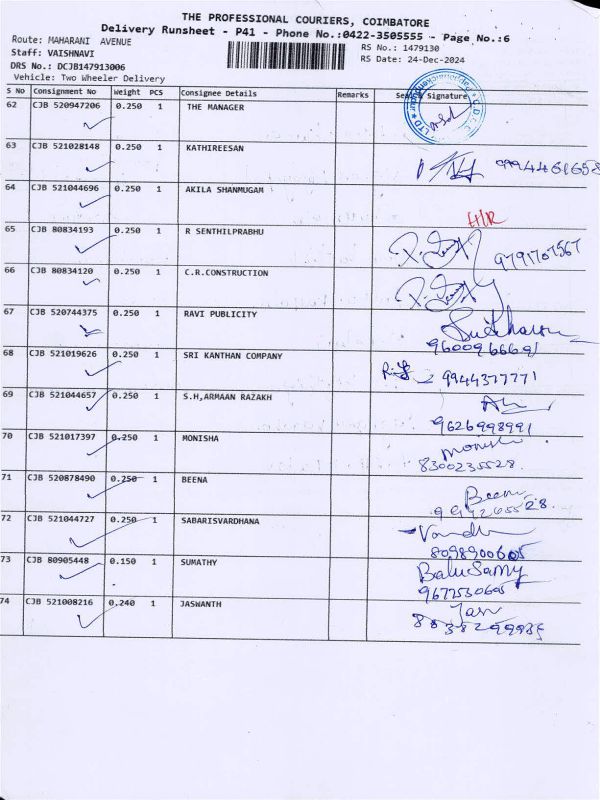 THE PROFESSIONAL COURIERS, COIMBATORE
Delivery Runsheet - P41 - Phone No.:0422-3505555 - Page No.:6
Route: MAHARANI AVENUE
RS No.: 1479130
Staff: VAISHNAVI
RS Date: 24-Dec-2024
DRS No.: DCJB147913006
Vehicle: Two Wheeler Delivery
S No Consignment No Weight PCS Consignee Details Remarks Signature
62 CJB 520947206 0.250 1 THE MANAGER
63 CJB 521028148 0.250 1 KATHIREESAN 9994461658
64 CJB 521044696 0.250 1 AKILA SHANMUGAM
H/R
65 CJB 80834193 0.250 1 R SENTHILPRABHU 9791707567
66 CJB 80834120 0.250 1 C.R.CONSTRUCTION
67 CJB 520744375 0.250 1 RAVI PUBLICITY
9600966691
68 CJB 521019626 0.250 1 SRI KANTHAN COMPANY 9944377771
69 CJB 521044657 0.250 1 S.H,ARMAAN RAZAKH
9626998991
70 CJB 521017397 0.250 1 MONISHA Monisha
8300235528
71 CJB 520878490 0.250 1 BEENA Beena
72 CJB 521044727 0.250 1 SABARISVARDHANA
8098900605
73 CJB 80905448 0.150 1 SUMATHY BaluSamy
9677530605
74 CJB 521008216 0.240 1 JASWANTH